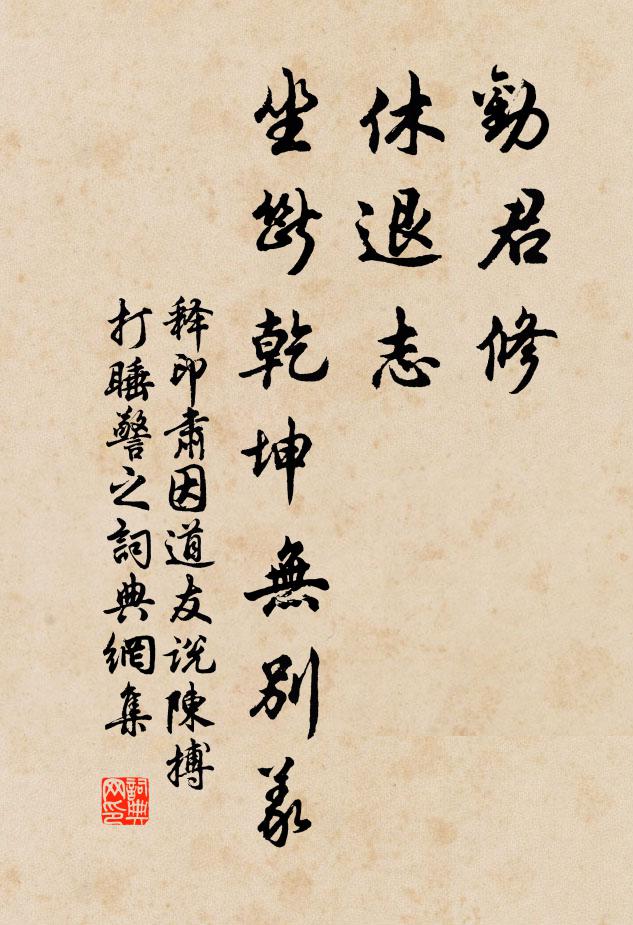 勸君修
休退志
坐斷乾坤無別義
释印肃因道友说陳搏
打睡警之詞典網集
詞典网印